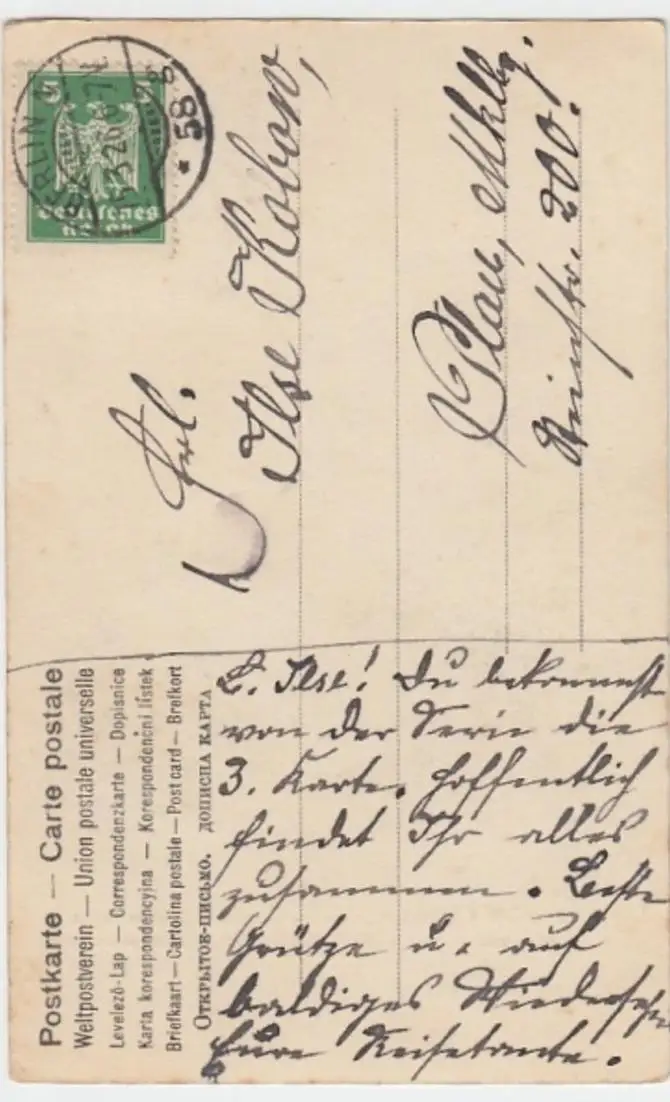 Postkarte — Carte postale
Weltpostverein — Union postale universelle
Levelező-Lap — Correspondenzkarte — Dopisnice
Karta korespondencyjna — Korespondenční lístek
Briefkaart — Cartolina postale — Post card — Brefkort
Открытое-письмо. дописна карта
BERLIN N
58
Deutsches
Reich
5
Frl.
Ilse Kobow,
Plau, Mklbg.
200!
L. Ilse! Du bekommst
von der Serie die
3. Karte. Hoffentlich
findet Ihr alles
zusammen. Beste
Grütze u. auf
baldiges Wiedersehn
Eure Reisetante.